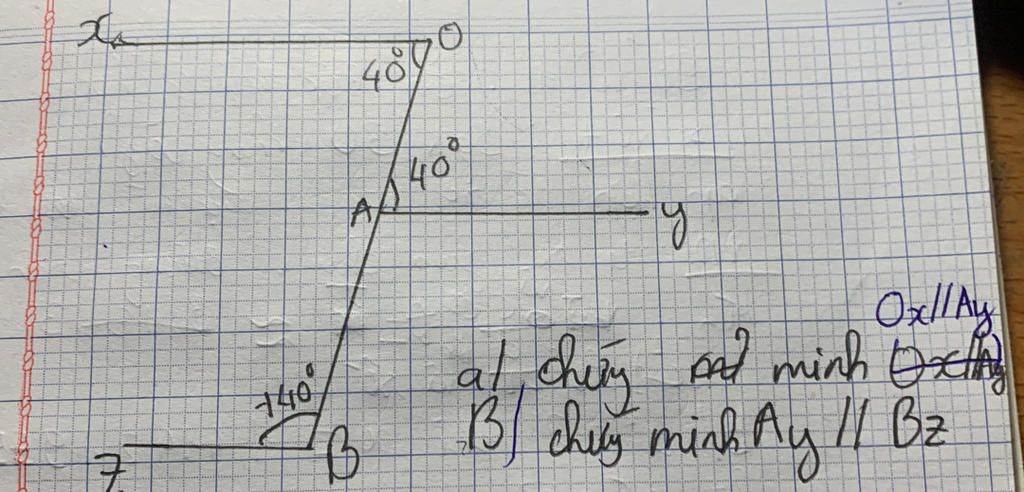 x O
40°
40°
A y
Ox//Ay
a/ chứng minh
140°
B/ chứng minh Ay // Bz
z B